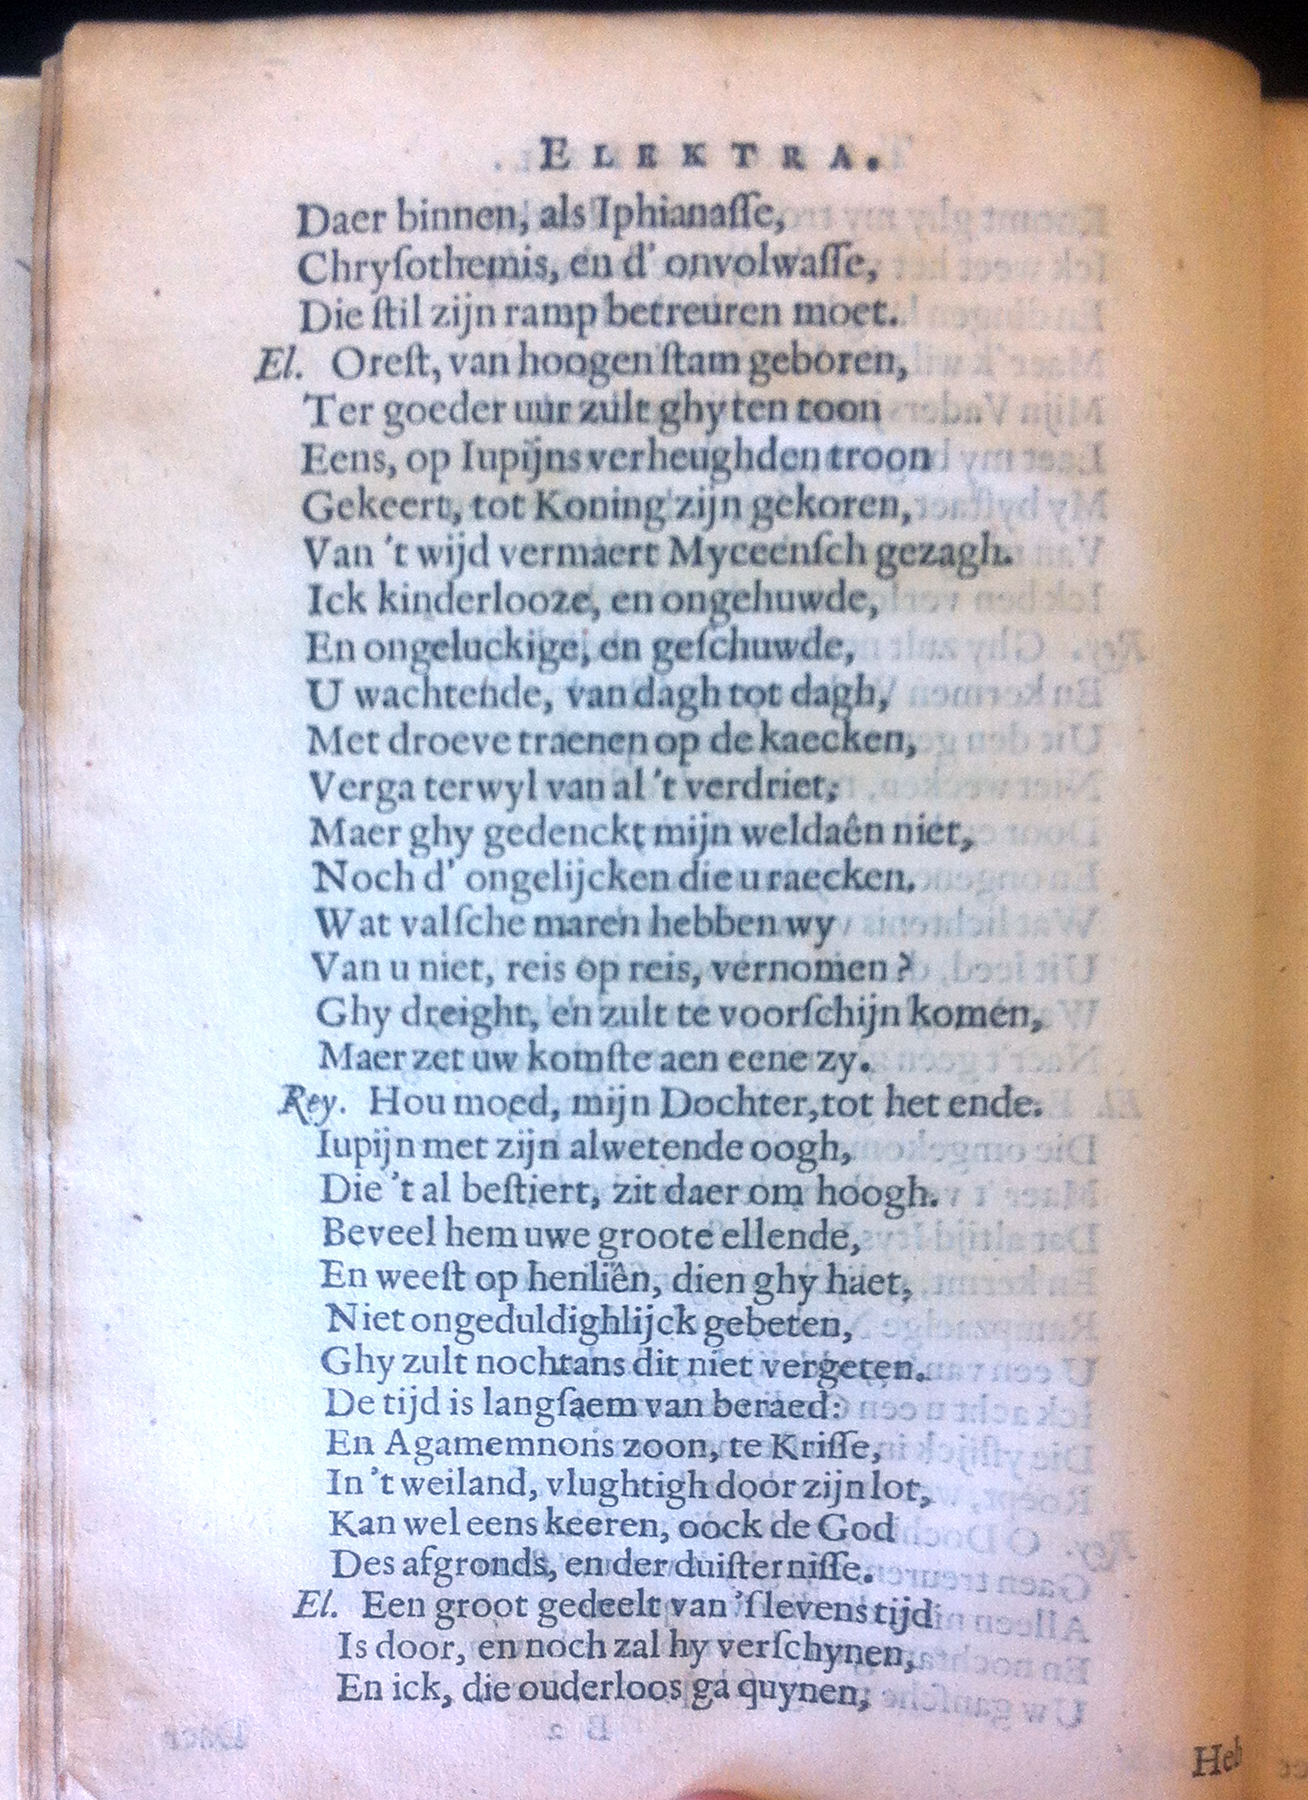 ELEKTRA.
Daer binnen, als Iphianaſſe,
Chryſothemis, en d' onvolwaſſe,
Die ſtil zijn ramp betreuren moet.
El. Oreſt, van hoogen ſtam geboren,
Ter goeder uur zult ghy ten toon
Eens, op Iupijns verheughden troon
Gekeert, tot Koning zijn gekoren,
Van 't wijd vermaert Myceenſch gezagh.
Ick kinderlooze, en ongehuwde,
En ongeluckige, en geſchuwde,
U wachtende, van dagh tot dagh,
Met droeve traenen op de kaecken,
Verga terwyl van al 't verdriet;
Maer ghy gedenckt mijn weldaên niet,
Noch d' ongelijcken die u raecken.
Wat valſche maren hebben wy
Van u niet, reis op reis, vernomen?
Ghy dreight, en zult te voorſchijn komen,
Maer zet uw komſte aen eene zy.
Rey. Hou moed, mijn Dochter, tot het ende.
Iupijn met zijn alwetende oogh,
Die 't al beſtiert, zit daer om hoogh.
Beveel hem uwe groote ellende,
En weeſt op henliên, dien ghy haet,
Niet ongeduldighlijck gebeten,
Ghy zult nochtans dit niet vergeten.
De tijd is langſaem van beraed:
En Agamemnons zoon, te Kriſſe,
In 't weiland, vlughtigh door zijn lot,
Kan wel eens keeren, oock de God
Des afgronds, en der duiſterniſſe.
El. Een groot gedeelt van 'ſlevens tijd
Is door, en noch zal hy verſchynen,
En ick, die ouderloos ga quynen;
Heb